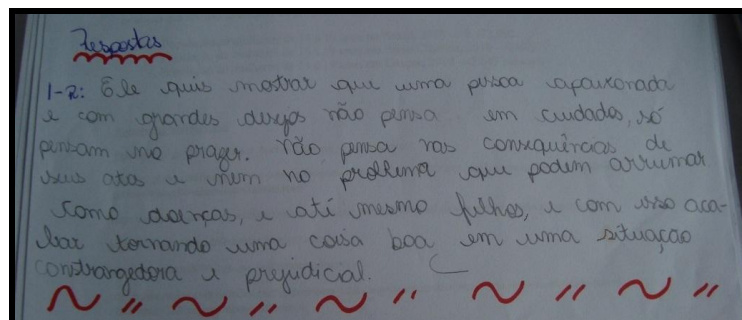 Respostas
1-R: Ele quis mostrar que uma pesoa apaixonada
e com grandes desejos não pensa em cuidados, só
pensam no prazer. Não pensa nas consequências de
seus atos e nem no problema que podem arrumar
como doenças, e até mesmo filhos, e com isso aca-
bar tornando uma coisa boa em uma situação
constrangedora e prejudicial.